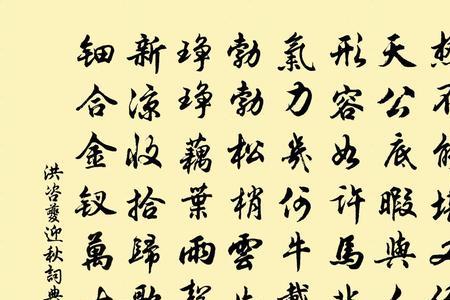 不能
天公底暇與人
形容如許馬
氣力幾何牛載
勃勃松梢雲
琤琤藕葉雨聲
新涼收拾歸歌
鈿合金釵萬
洪咨夔迎秋詞典